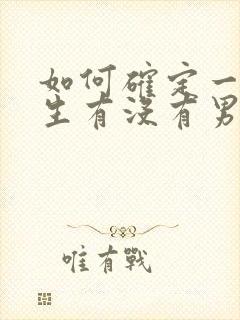 如何確定一
生有沒有男
唯有戰